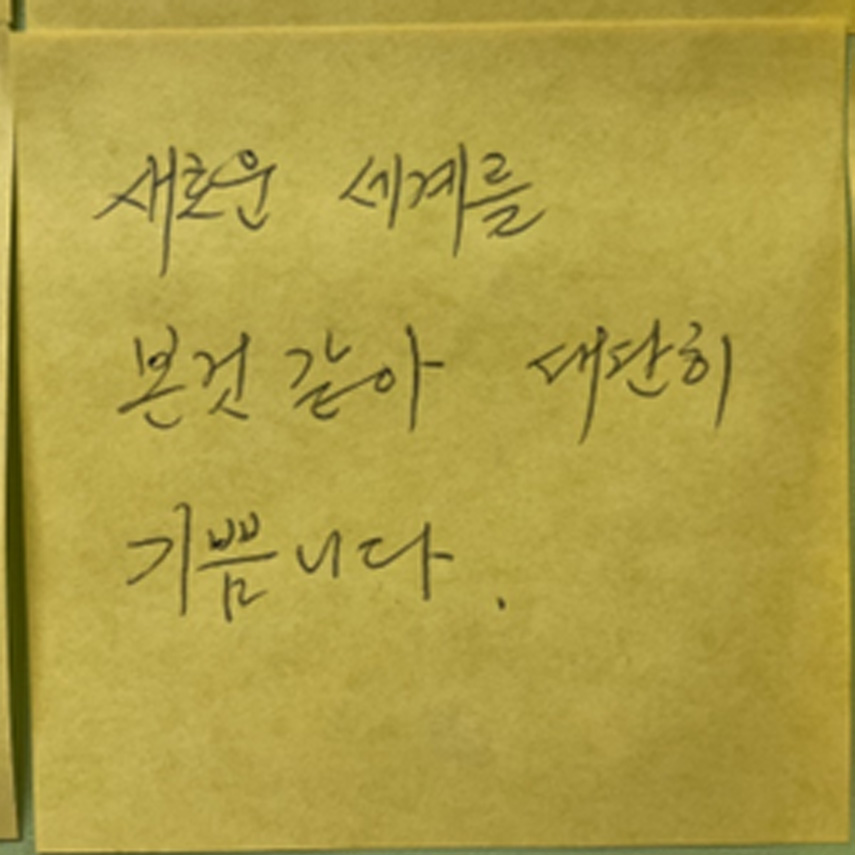 새로운 세계를
본것 같아 대단히
기쁩니다.